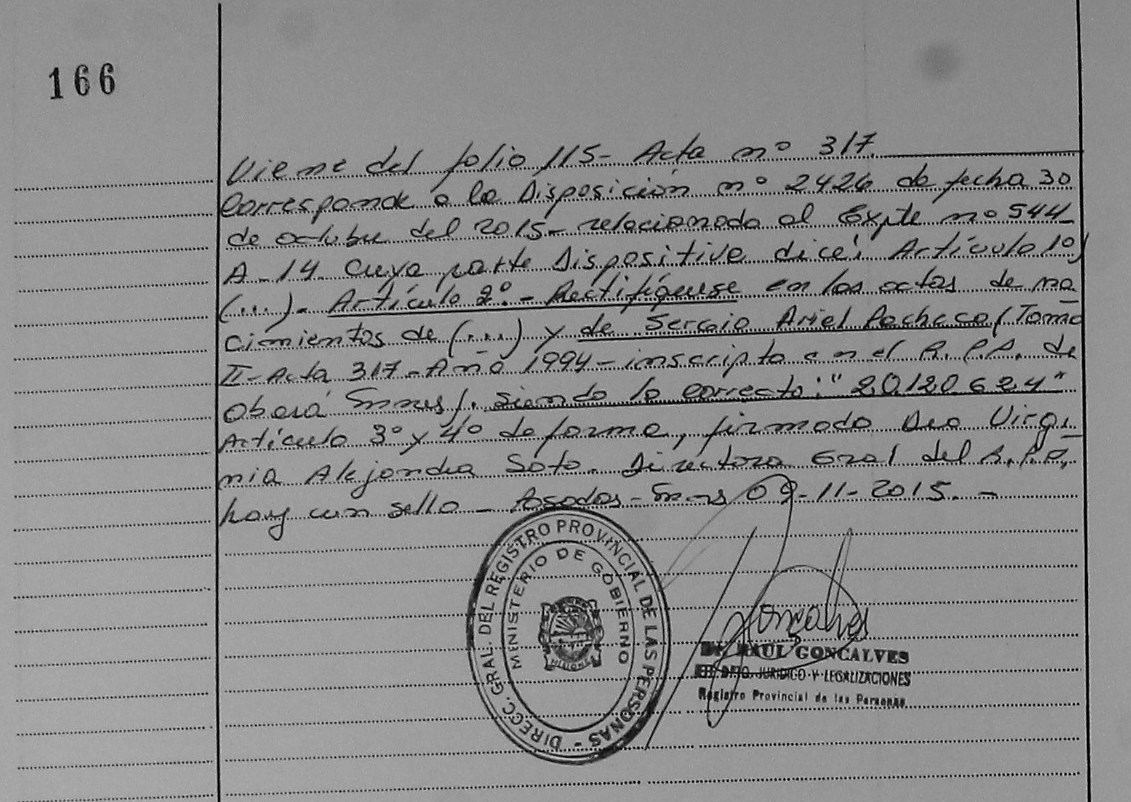 166
Viene del folio 115- Acta nº 317.
Corresponde a la Disposición nº 2426 de fecha 30
de octubre del 2015- relacionada al Expte nº 544-
A-14 cuya parte Dispositiva dice: Artículo 1º)
(...)- Artículo 2º.- Rectifíquese en los actas de na
cimientos de (...) y de Sergio Ariel Pacheco (Tomo
II-Acta 317-Año 1994-inscripta en el R.P.P. de
Oberá Mnes/. siendo lo correcto: "20.120.624"
Artículo 3º y 4º de forma, firmado Dra Virgi
nia Alejandra Soto. Directora Gral del R.P.P.
hay un sello - Posadas-Mnes 09-11-2015.-
DIRECC. GRAL. DEL REGISTRO PROVINCIAL DE LAS PERSONAS -
MINISTERIO DE GOBIERNO
MISIONES
Dr. RAUL GONCALVES
JEFE DPTO. JURIDICO Y LEGALIZACIONES
Registro Provincial de las Personas